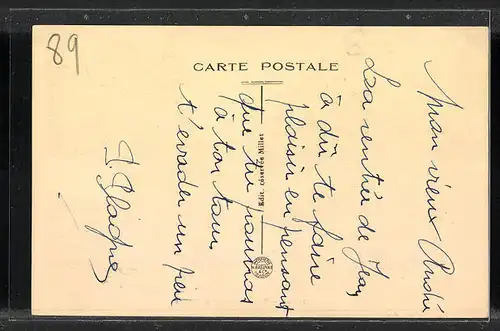 89
CARTE POSTALE
Mon vieux André
La rentrée de Jean
a dû te faire
plaisir en pensant
que tu pourras
à ton tour
t'évader un peu
Edit. réservée Millet